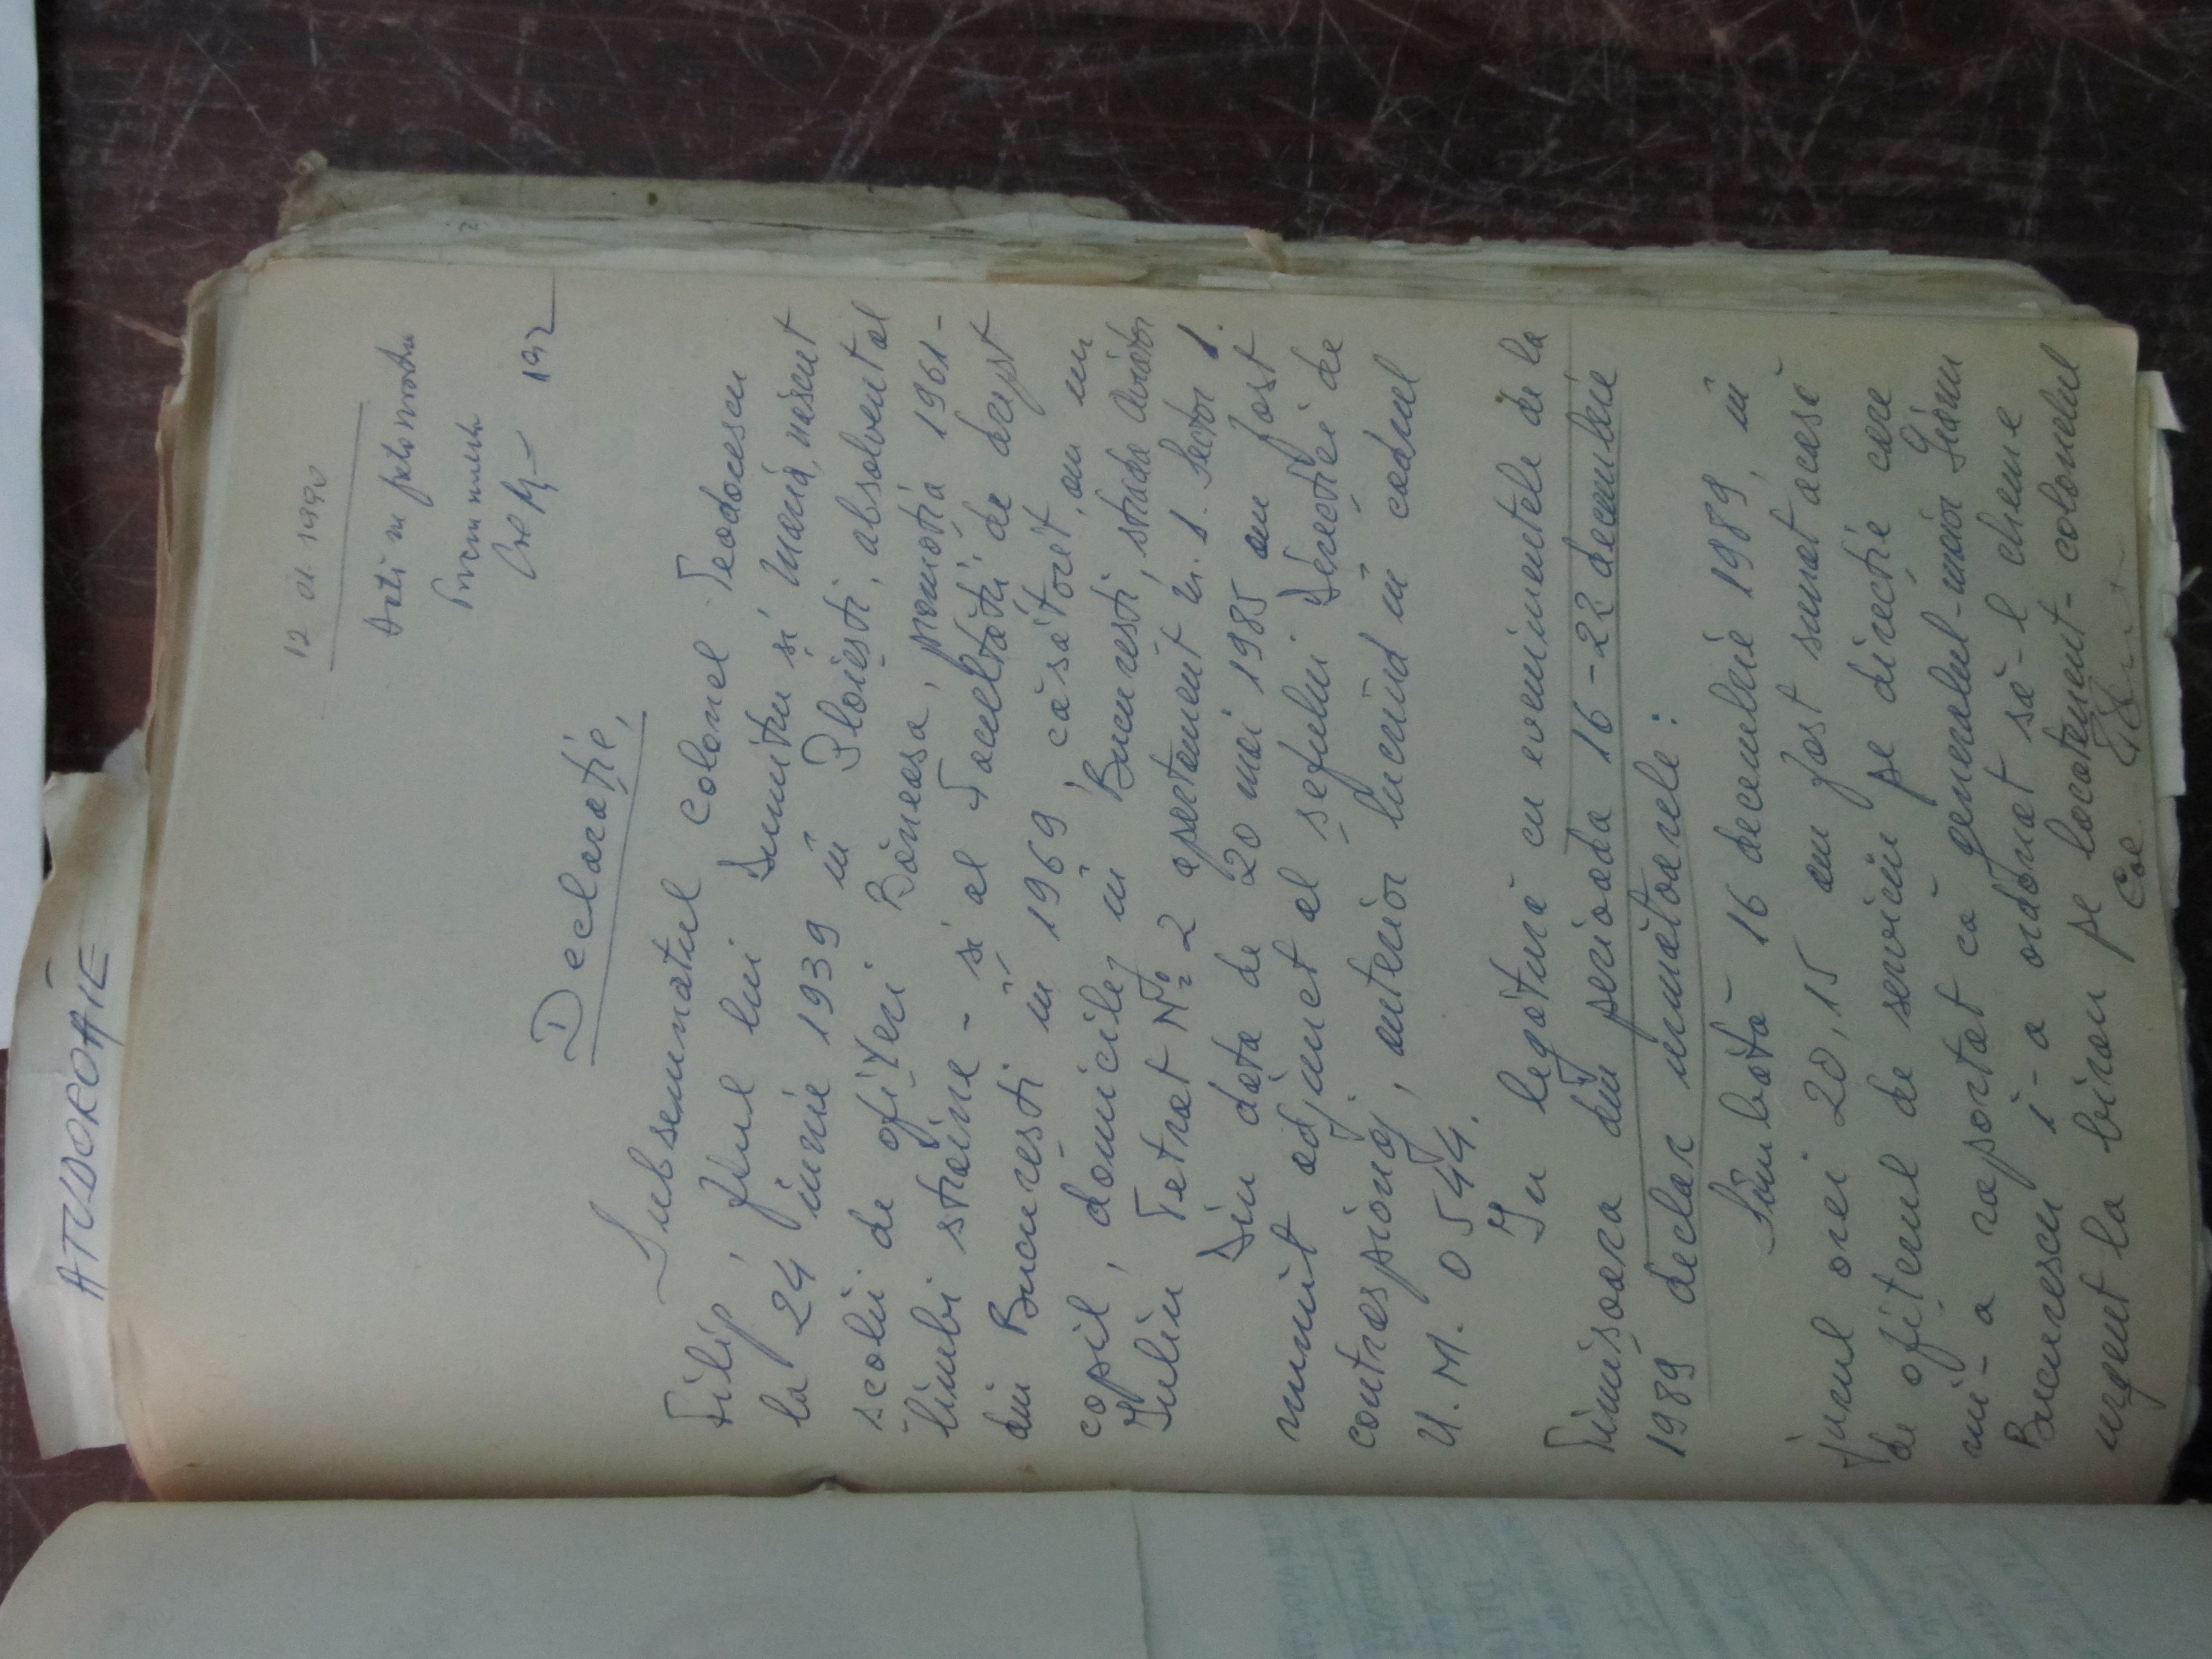 ATUDOROAIE
12 01 1990
Dată în fața noastră
Procuror militar
192
Declarație,
Subsemnatul colonel Teodorescu
Filip, fiul lui Dumitru și Maria, născut
la 24 iunie 1939 în Ploiești, absolvental
școlii de ofițeri Băneasa, promoția 1961-
limbi străine - și al Facultății de drept
din București în 1969, căsătorit, am un
copil, domiciliez în București, strada Aviator
Iuliu Tetrat Nr. 2 apartament nr. 1. Sector 1.
Din data de 20 mai 1985 am fost
numit adjunct al șefului Direcției de
contraspionaj, anterior lucrînd în cadrul
U.M. 0544.
În legătură cu evenimentele de la
Timișoara din perioada 16-22 decembrie
1989 declar următoarele:
Sîmbătă 16 decembrie 1989, în
jurul orei 20,15 am fost sunat acasă
de ofițerul de serviciu pe direcție care
mi-a raportat că generalul-maior Gianu
Bucurescu i-a ordonat să-l cheme
urgent la birou pe locotenent-colonelul
Col.